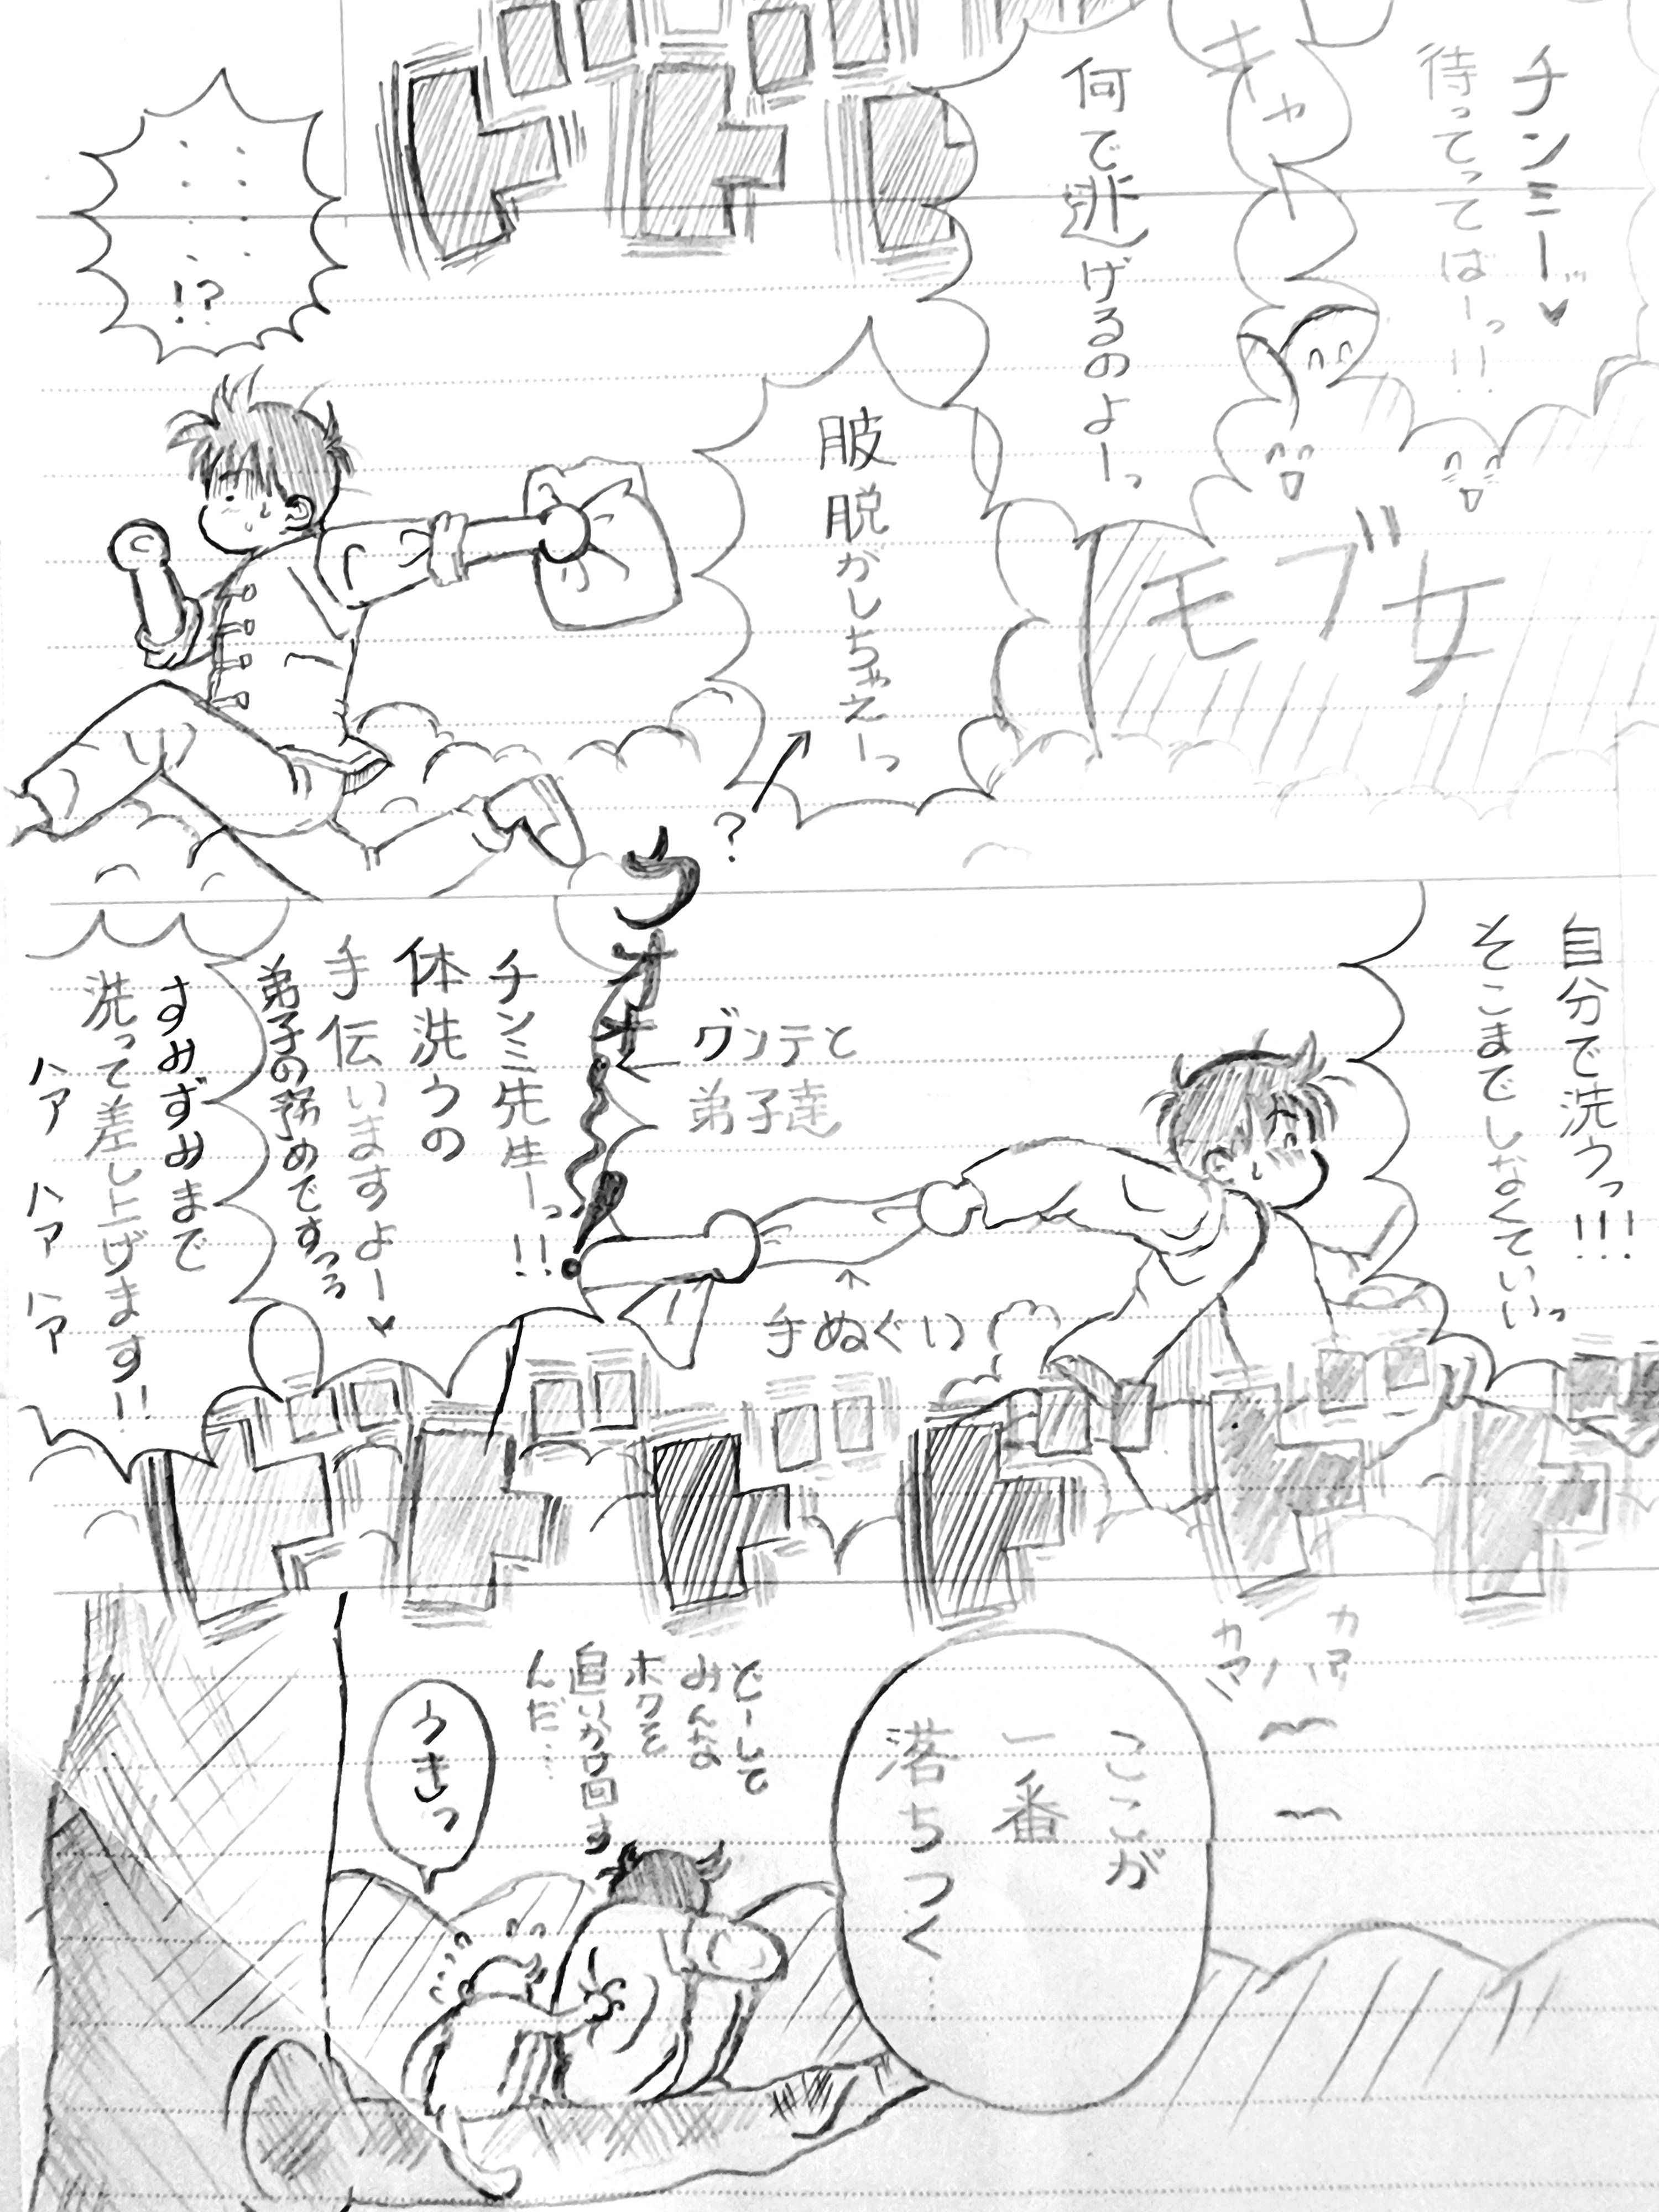 チンミー♥
待ってってばーっ!!
キャー
何で逃げるのよーっ
ドドド
モブ女
服脱がしちゃえーっ
?
……!?
自分で洗うっ!!!
そこまでしなくていいっ
ウオオ
グンテと
弟子達
手ぬぐい
チンミ先生ーっ!!
体洗うの
手伝いますよー♥
弟子の務めですっ
すみずみまで
洗って差し上げます!!
ハア
ハア
ハア
ドドドドドド
カア
カア
ここが
一番
落ちつく……
どーして
みんな
ボクを
追いかけ回す
んだ…
うきっ